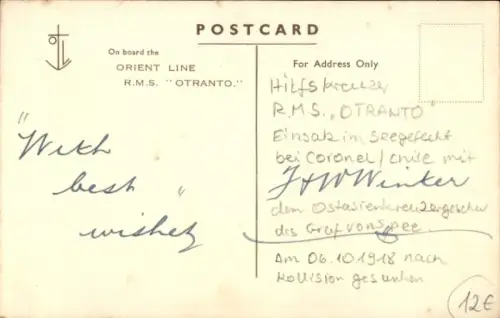 POSTCARD
On board the
ORIENT LINE
R.M.S. "OTRANTO."
"With
best "
wishes
For Address Only
Hilfskreuzer
R.M.S. „OTRANTO"
Einsatz im Seegefecht
bei Coronel/Chile mit
J & W Winter
dem Ostasienkreuzergeschw
des Graf von Spee
Am 06.10.1918 nach
Kollision gesunken
12€